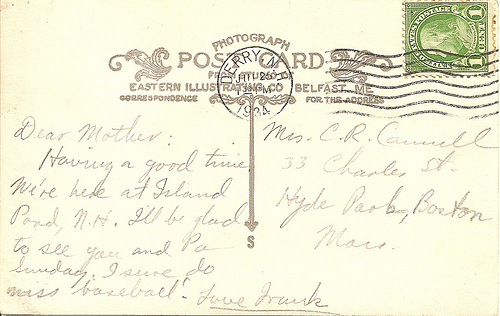 PHOTOGRAPH
POST CARD
EASTERN ILLUSTRATING CO BELFAST, ME
CORRESPONDENCE
FOR THE ADDRESS
DERRY, N.H.
1934
1 CENT 1
Dear Mother:
Having a good time.
We're here at Island
Pond, N.H. I'll be glad
to see you and Pa
Sunday. I sure do
miss "baseball".
Love Frank
Mrs. C. R.
33 Charles St.
Hyde Park, Boston
Mass.
S